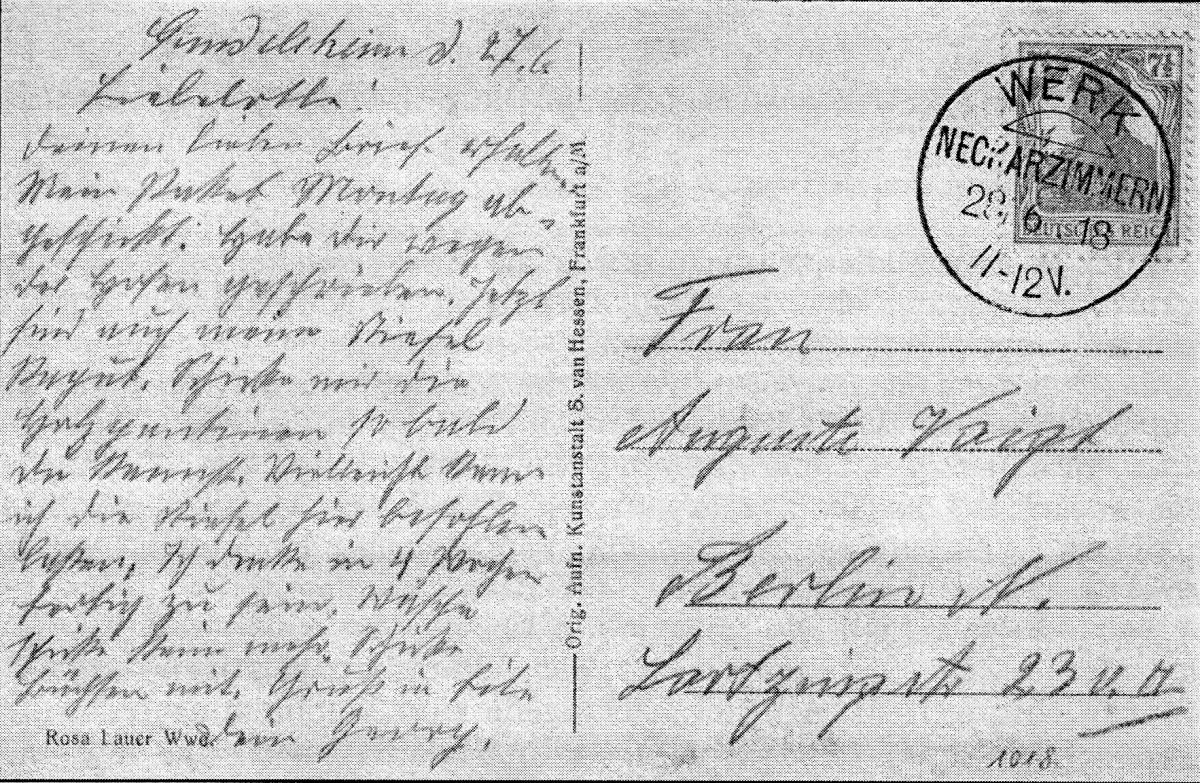 Gundelsheim d. 27.6
Liebe Lotte!
Deinen lieben Brief erhalten.
Mein Paket Montag ab-
geschickt. Habe dir wegen
der Hosen geschrieben. Jetzt
sind auch meine Stiefel
kaput. Schicke mir die
Holzpantinen so bald
du kannst. Vielleicht kann
ich die Stiefel hier besohlen
laßen. Ich denke in 4 Wochen
fertig zu sein. Wäsche
schicke kein mehr. Schicke
Büchsen mit. Gruß in Eile
Dein Georg.
Rosa Lauer Wwe.
Orig. Aufn. Kunstanstalt S. van Hessen, Frankfurt a/M.
7½
DEUTSCHES REICH
WERK
NECKARZIMMERN
28. 6. 18
11-12V.
Frau
Auguste Voigt
Berlin N.
Lortzingstr 23 v. II
1018